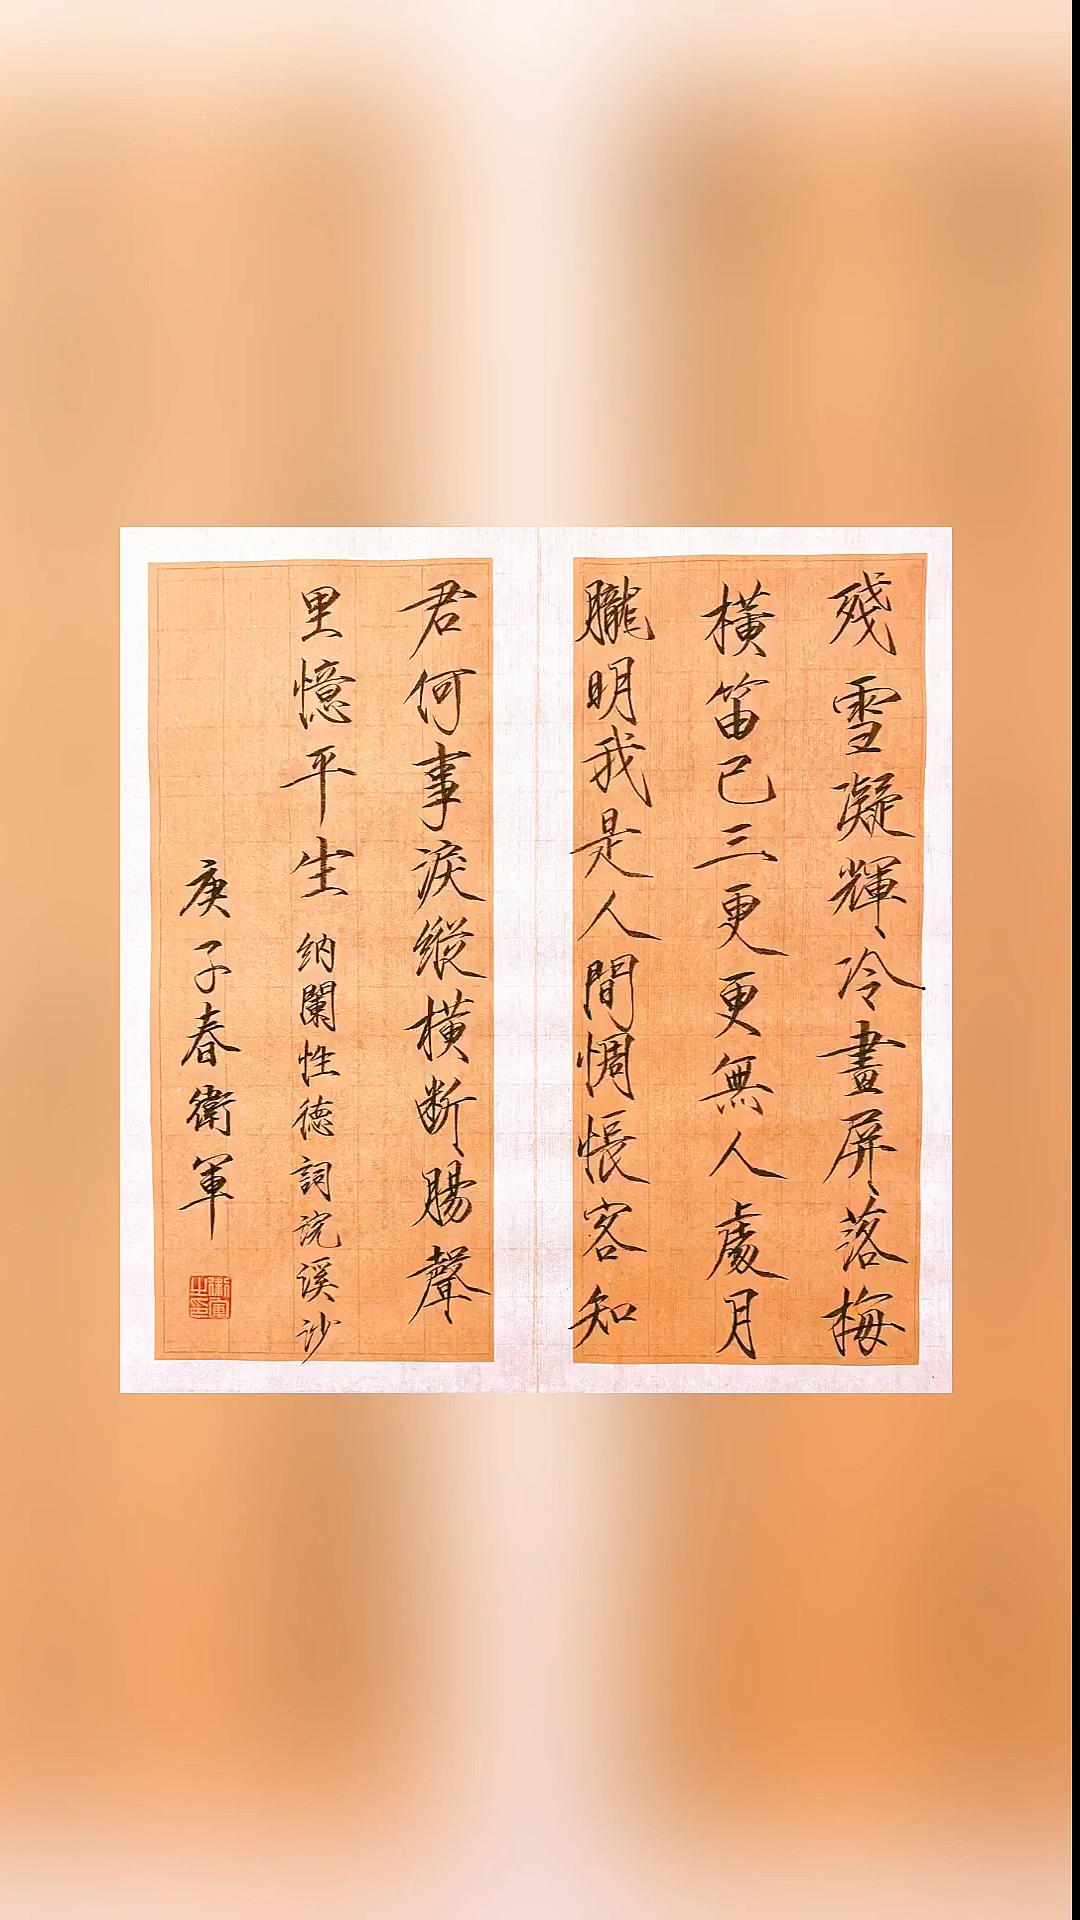 殘雪凝輝冷畫屏落梅
橫笛已三更更無人處月
朧明我是人間惆悵客知
君何事淚縱橫断腸聲
里憶平生 纳闌性德詞浣溪沙
庚子春衛軍
衛軍之印